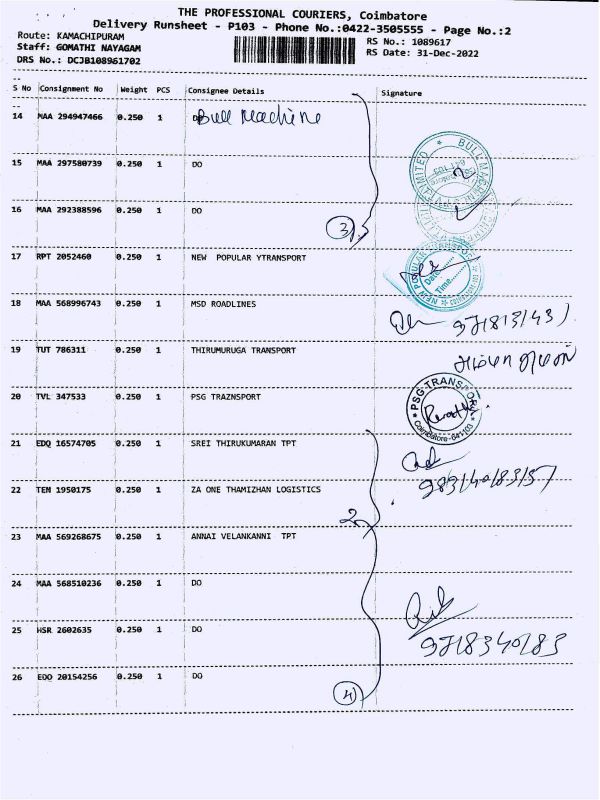 THE PROFESSIONAL COURIERS, Coimbatore
Delivery Runsheet - P103 - Phone No.:0422-3505555 - Page No.:2
Route: KAMACHIPURAM
RS No.: 1089617
Staff: GOMATHI NAYAGAM
RS Date: 31-Dec-2022
DRS No.: DCJB108961702
S No Consignment No Weight PCS Consignee Details Signature
14 MAA 294947466 0.250 1 DO Bull Machine
15 MAA 297580739 0.250 1 DO
16 MAA 292388596 0.250 1 DO
3
17 RPT 2052460 0.250 1 NEW POPULAR YTRANSPORT
18 MAA 568996743 0.250 1 MSD ROADLINES
19 TUT 786311 0.250 1 THIRUMURUGA TRANSPORT
20 TVL 347533 0.250 1 PSG TRAZNSPORT
PSG TRANSPORT
Coimbatore-641103
21 EDQ 16574705 0.250 1 SREI THIRUKUMARAN TPT
22 TEN 1950175 0.250 1 ZA ONE THAMIZHAN LOGISTICS
2
23 MAA 569268675 0.250 1 ANNAI VELANKANNI TPT
24 MAA 568510236 0.250 1 DO
25 HSR 2602635 0.250 1 DO
9718340183
26 EDO 20154256 0.250 1 DO
4